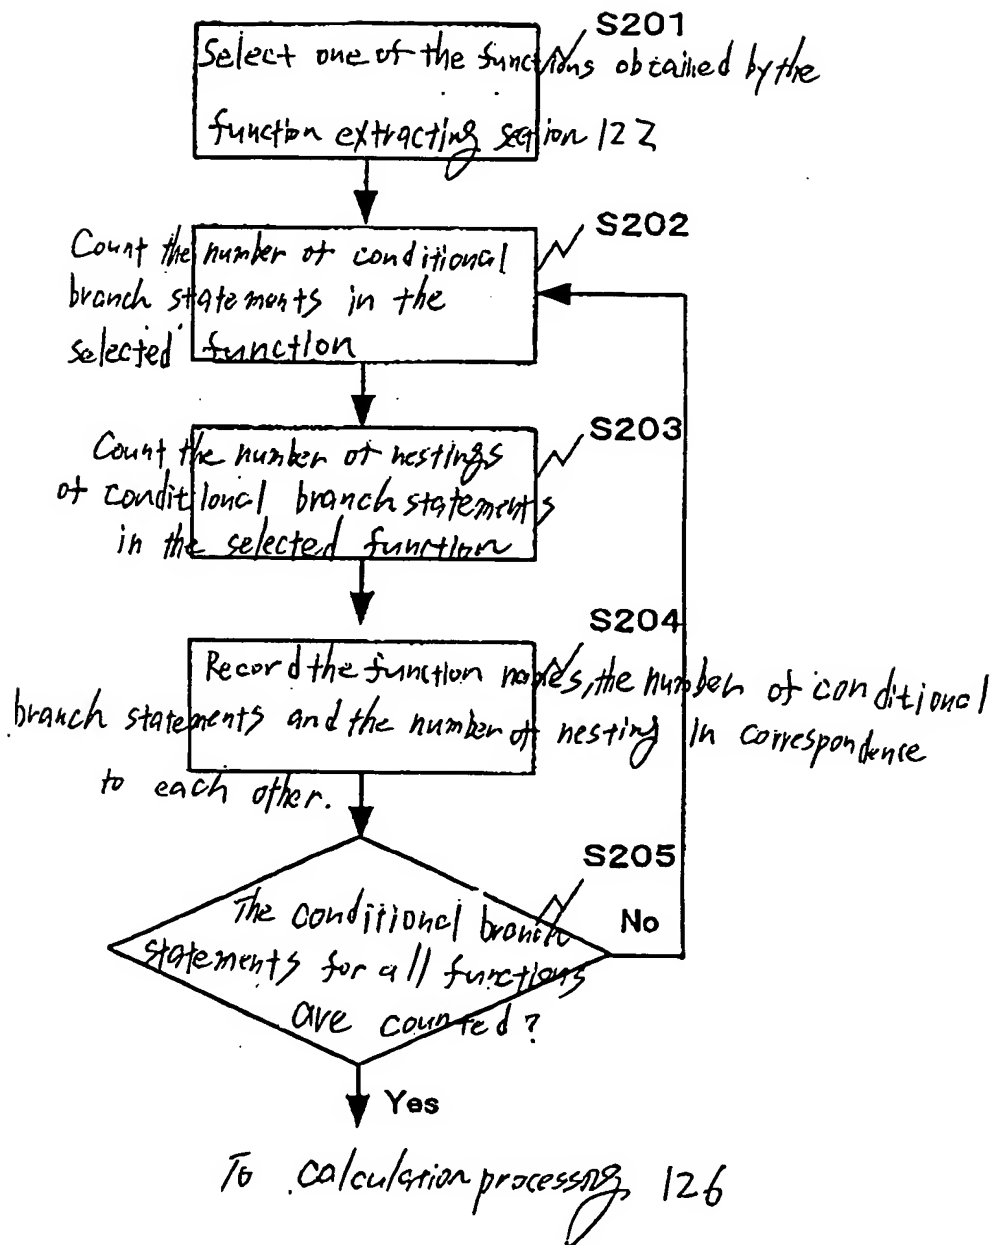 S201
Select one of the functions obtained by the
function extracting section 122
S202
Count the number of conditional
branch statements in the
selected function
S203
Count the number of nestings
of conditional branch statements
in the selected function
S204
Record the function names, the number of conditional
branch statements and the number of nesting in correspondence
to each other.
S205
The conditional branch
statements for all functions
are counted?
No
Yes
To calculation processng 126